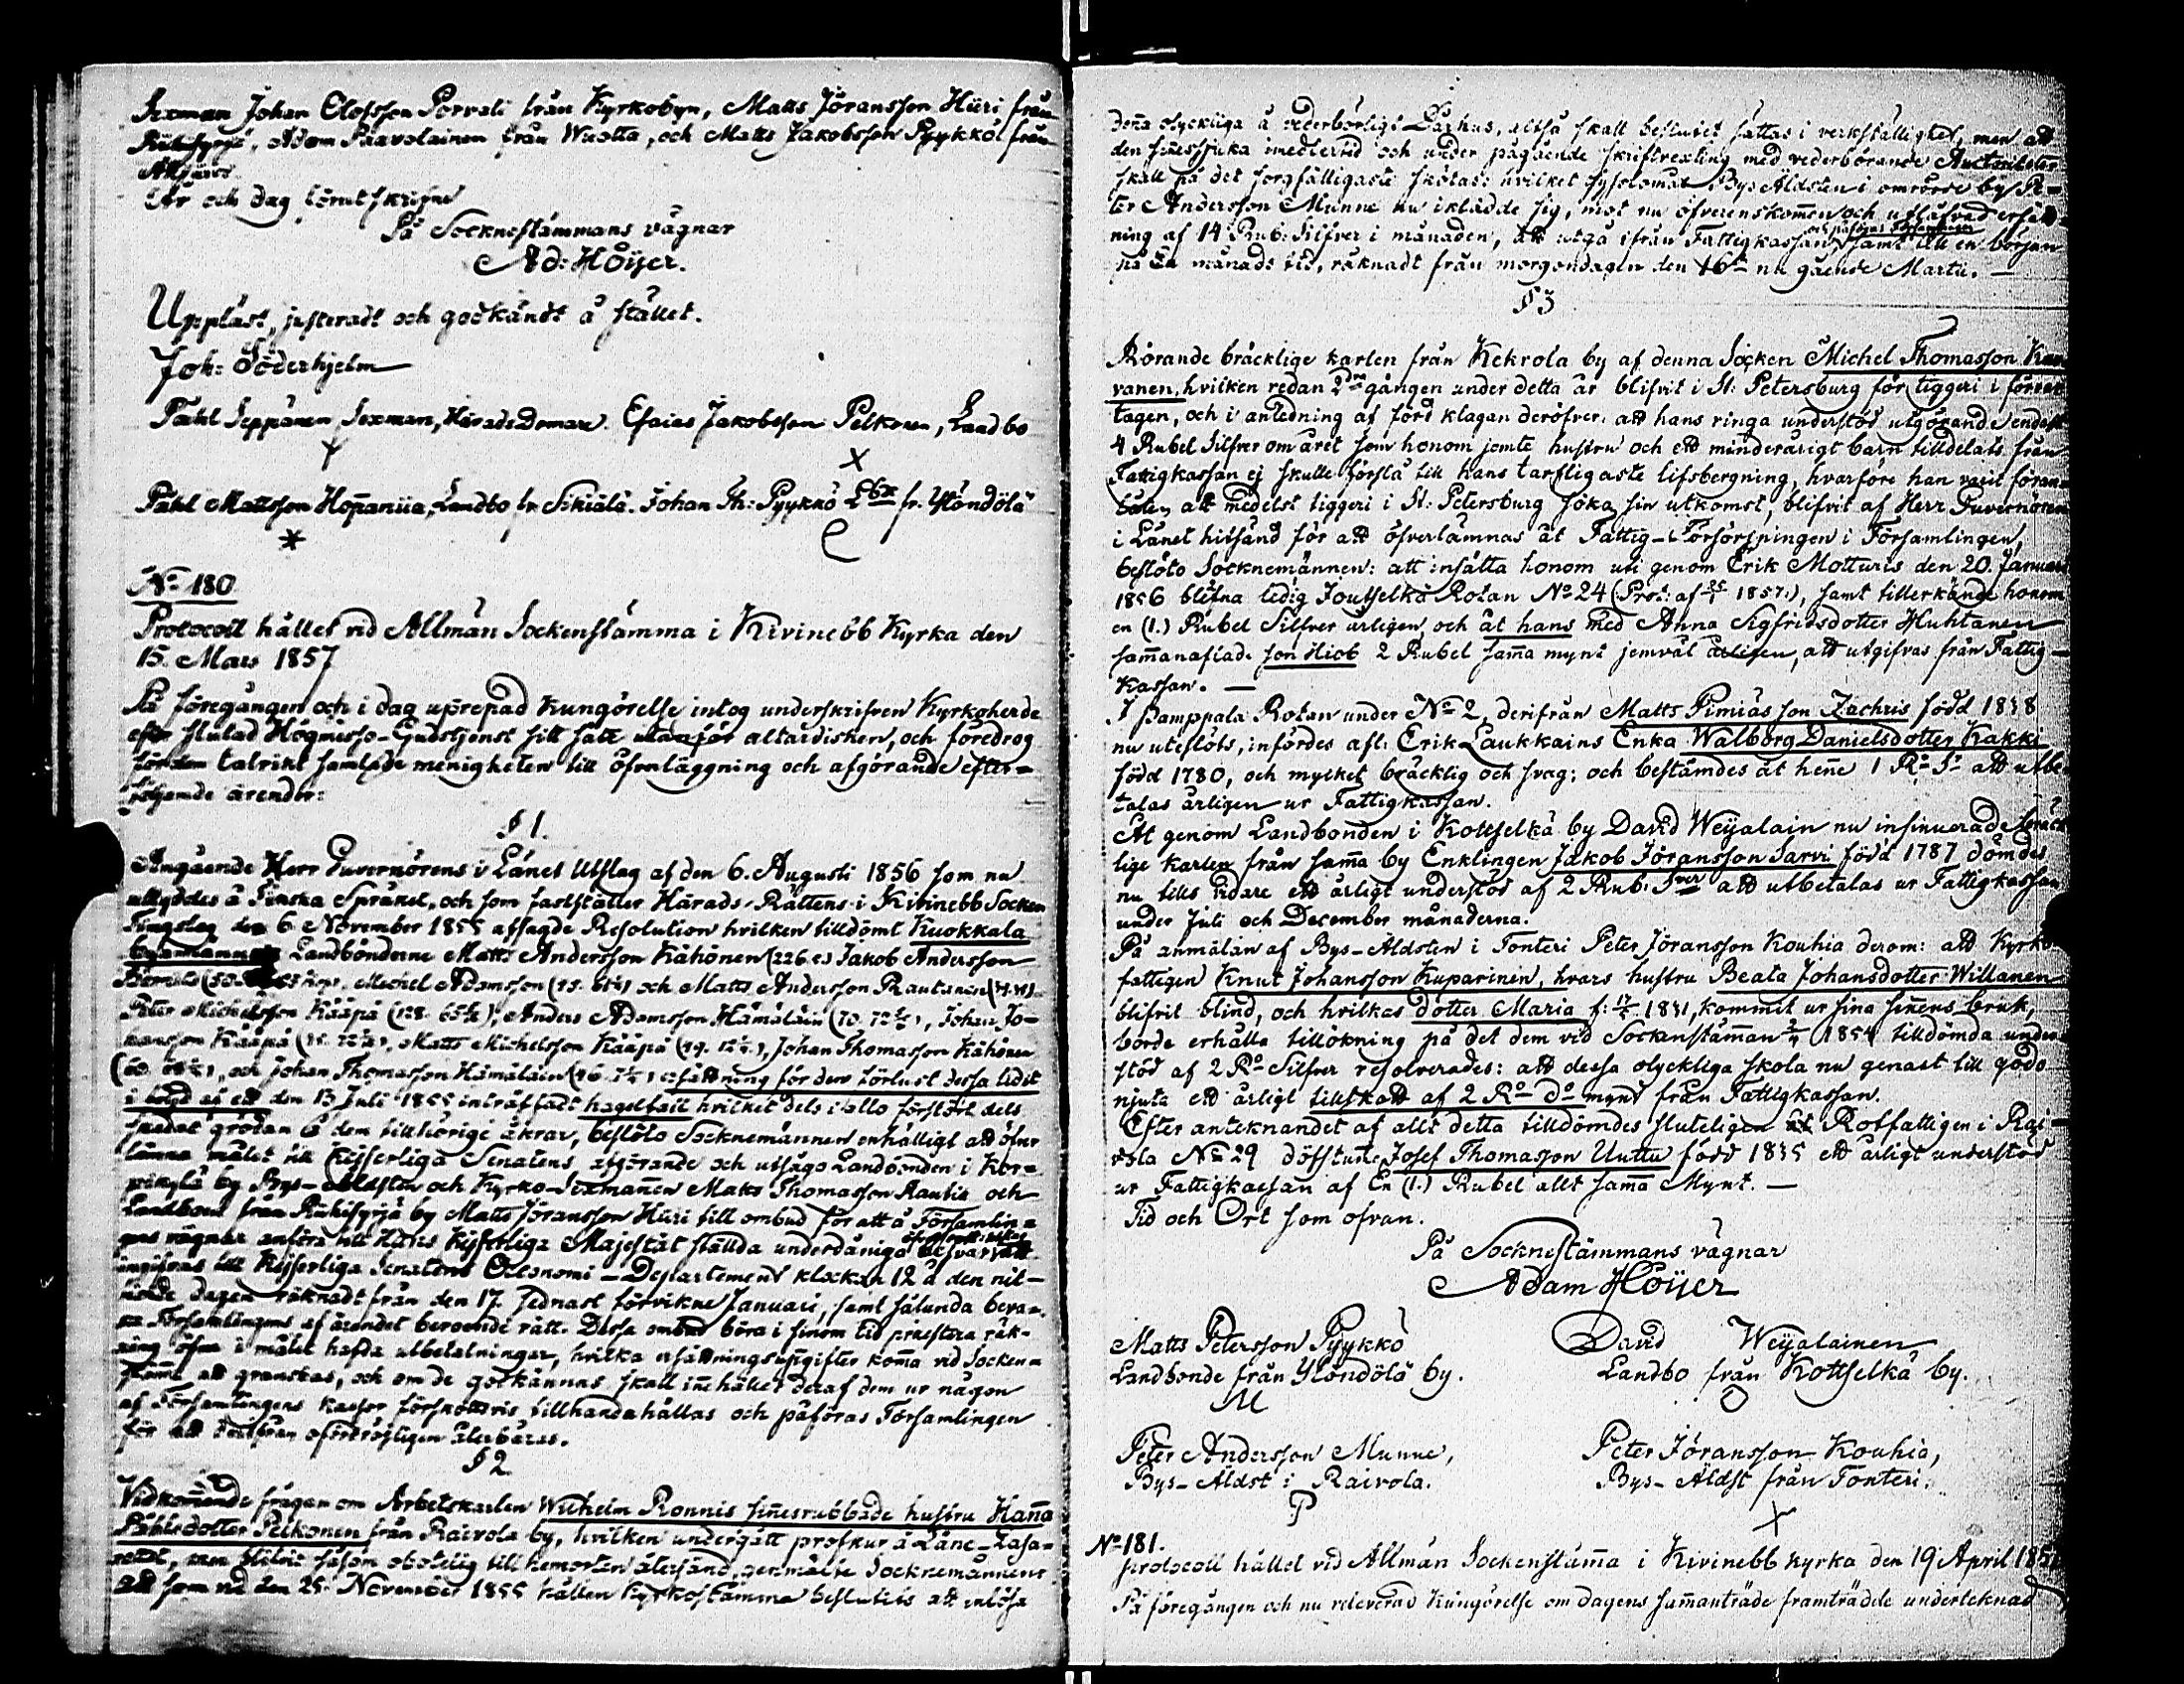 Sexman Johan Olofsson Porvali från Kyrkobyn, Matts Jöransson Hüri från
Adam Paavolainen från Wuotta, och Matts Jakobsson Pyykkö från
År och dag förutskrifne
På Sockneståmmans vägnar
Ad: Höijer.
Uppläst, justeradt och godkändt å stället.
Joh: Söderhjelm
Påhl Seppänen Sexman, HäradsDomare. Esaias Jakobsson Pelkonen, Landbo
X
Påhl Mattsson Hopaniia, Landbo fr. Sikiälä. Johan Th: Pyykkö fr. Ylöndölä
No 180
Protocoll hållet vid Allmän Sockenstämma i Kivinebb Kyrka den
15. Mars 1857
På föregången och i dag uprepad Kungörelse intog underskrifven Kyrkoherde
efter slutad Högmisso-Gudstjenst sitt säte utanför altardisken, och föredrog
för den talrikt samlade menigheten till öfverläggning och afgörande efter-
följande ärender:
§ 1.
Angående Herr Guvernörens i Länet Utslag af den 6. Augusti 1856 som nu
uttyddes å Finska Språket, och som fastställer Härads-Rättens i Kivinebb Socken
Tingslag den 6 November 1855 afsagde Resolution hvilken tilldömt Kuokkala
Landbönderne Matts Andersson Kähönen (226. Jakob Andersson
Michel Adamsson och Matts Andersson Rautanen
Peter Michelsson Kääpä (128. 65 Anders Adamsson Hämäläin (70. 72 Johan Jo-
hansson Kääpä Matts Michelsson Kääpä Johan Thomasson Kähönen
och Johan Thomasson Hämäläin ersättning för den förlust dessa lidit
i följd af ett den 13 Juli 1855 inträffadt hagelfall hvilket dels i allo förstört dels
skadat grödan å dem tillhörige åkrar, beslöto Socknemännen enhälligt att öfver
lämna målet till Kejserliga Senatens afgörande och utsågo Landbonden i Kor-
by Bys-Äldsten och Kyrko-Sexmannen Matts Thomasson Rautia och
Landbond från by Matts Jöransson Hüri till ombud för att å Församlin-
gens vägnar anföra till Hans Kejserliga Majestät ställda underdåniga
ingifvas till Kejserliga Senatens Oeconomi-Departement klockan 12 å den nit-
tionde dagen räknadt från den 17. sednast förvikne Januari, samt sålunda beva-
ra Församlingens af ärendet beroende rätt. Dessa ombud böra i sinom tid præstera räk-
ning öfver i målet hafda utbetalningar, hvilka ersättningsupgifter komma vid Socken-
stämma att granskas, och om de godkännas skall innehållet deraf dem ur någon
af Församlingens kassor förskottsvis tillhandahållas och påföras Församlingen
för att derifrån ofördröjligen återbäras.
§ 2
Vidkommande frågan om Arbetskarlen Wilhelm Ronnis sinnesrubbade hustru Hanna
Påhlsdotter Pelkonen från Raivola by, hvilken undergått profkur å Läne-Lasa-
rettet, men blifvit såsom obotelig till hemorten återsänd, genmälte Socknemännen:
att som vid den 25. November 1855 hållen Kyrkostämma beslutits att inlösa
denna olyckliga å vederbörligt Dårhus, altså skall beslutet sättas i verkställighet, men att
den sinnessjuka medlertid och under pågående skriftvexling med vederbörande Auctoriteter
skall på det sorgfälligaste skötas: hvilket Bys Äldsten i omrörde by Pe-
ter Andersson Munne nu iklädde sig, mot nu öfverenskommen och utlåfvad ersätt-
ning af 14 Rub: Silfver i månaden, att utgå ifrån Fattigkassan och påföras Församlingen samt till en början
på En månads tid, räknadt från morgondagen den 16de nu gående Martii. —
§ 3
Rörande bräcklige karlen från Kekrola by af denna Socken Michel Thomasson Kar-
vanen, hvilken redan 2dra gången under detta år blifvit i St: Petersburg för tiggeri i förvar
tagen, och i anledning af förd klagan deröfver, att hans ringa understöd utgörande endast
4 Rubel Silfver om året som honom jemte hustru och ett minderårigt barn tilldelats från
Fattigkassan ej skulle förslå till hans tarfligaste lifsbergning, hvarföre han varit föran-
låten att medelst tiggeri i St: Petersburg söka sin utkomst, blifvit af Herr Guvernören
i Länet hitsänd för att öfverlämnas åt Fattig-Försörjningen i Församlingen,
beslöto Socknemännen: att insätta honom uti genom Erik Motturis den 20. Januari
1856 blefna ledig Joutselkä Rotan No 24 (Prot: af 25/1 1857.), samt tillerkände honom
en (1.) Rubel Silfver årligen, och åt hans med Anna Sigfridsdotter Huhtanen
sammanaflade son Hiob 2 Rubel samma mynt jemväl årligen, att utgifvas från Fattig-
Kassan. —
I Pamppala Rotan under No 2, derifrån Matts Pimiäs son Zachris född 1838
nu uteslöts, infördes afl: Erik Laukkains Enka Walborg Danielsdotter Kakki
född 1780, och mycket bräcklig och svag; och bestämdes åt henne 1 Ro Sr att utbe-
talas årligen ur Fattigkassan.
Åt genom Landbonden i Kottselkä by David Weijalain nu insinuerade bräck
lige karlen från samma by Enklingen Jakob Jöransson Sarvi född 1787 dömdes
nu tills vidare ett årligt understöd af 2 Rub: Sver att utbetalas ur Fattigkassan
under Juli och December månaderna.
På anmälan af Bys-Äldsten i Tonteri Peter Jöransson Kouhia derom: att Kyrko-
fattigen Knut Johansson Kuparinin, hvars hustru Beata Johansdotter Willanen
blifvit blind, och hvilkas dotter Maria kommit ur sina sinnens bruk,
borde erhålla tillökning på det dem vid Sockenstämman 1854 tilldömda under-
stöd af 2 Ro Silfver resolverades: att dessa olyckliga skola nu genast till godo
njuta ett årligt tillskott af 2 Ro do mynt från Fattigkassan.
Efter anteknandet af allt detta tilldömdes sluteligen åt Rotfattigen i Rai-
vola No 29 döfstume Josef Thomasson Uuttu född 1835 ett årligt understöd
ur Fattigkassan af En (1.) Rubel allt samma Mynt. —
Tid och Ort som ofvan.
På Socknestämmans vägnar
Adam Höijer
Matts Petersson Pyykkö
Landbonde från Ylöndölä by.
M
David Weijalainen
Landbo från Kottselkä by.
O
Peter Andersson Munne,
Bys-Äldst i Raivola.
P
Peter Jöransson Kouhia,
Bys-Äldst från Tonteri.
X
No 181.
Protocoll hållet vid Allmän Sockenstämma i Kivinebb kyrka den 19 April
På föregången och nu releverad Kungörelse om dagens sammanträde framträdde underteknad